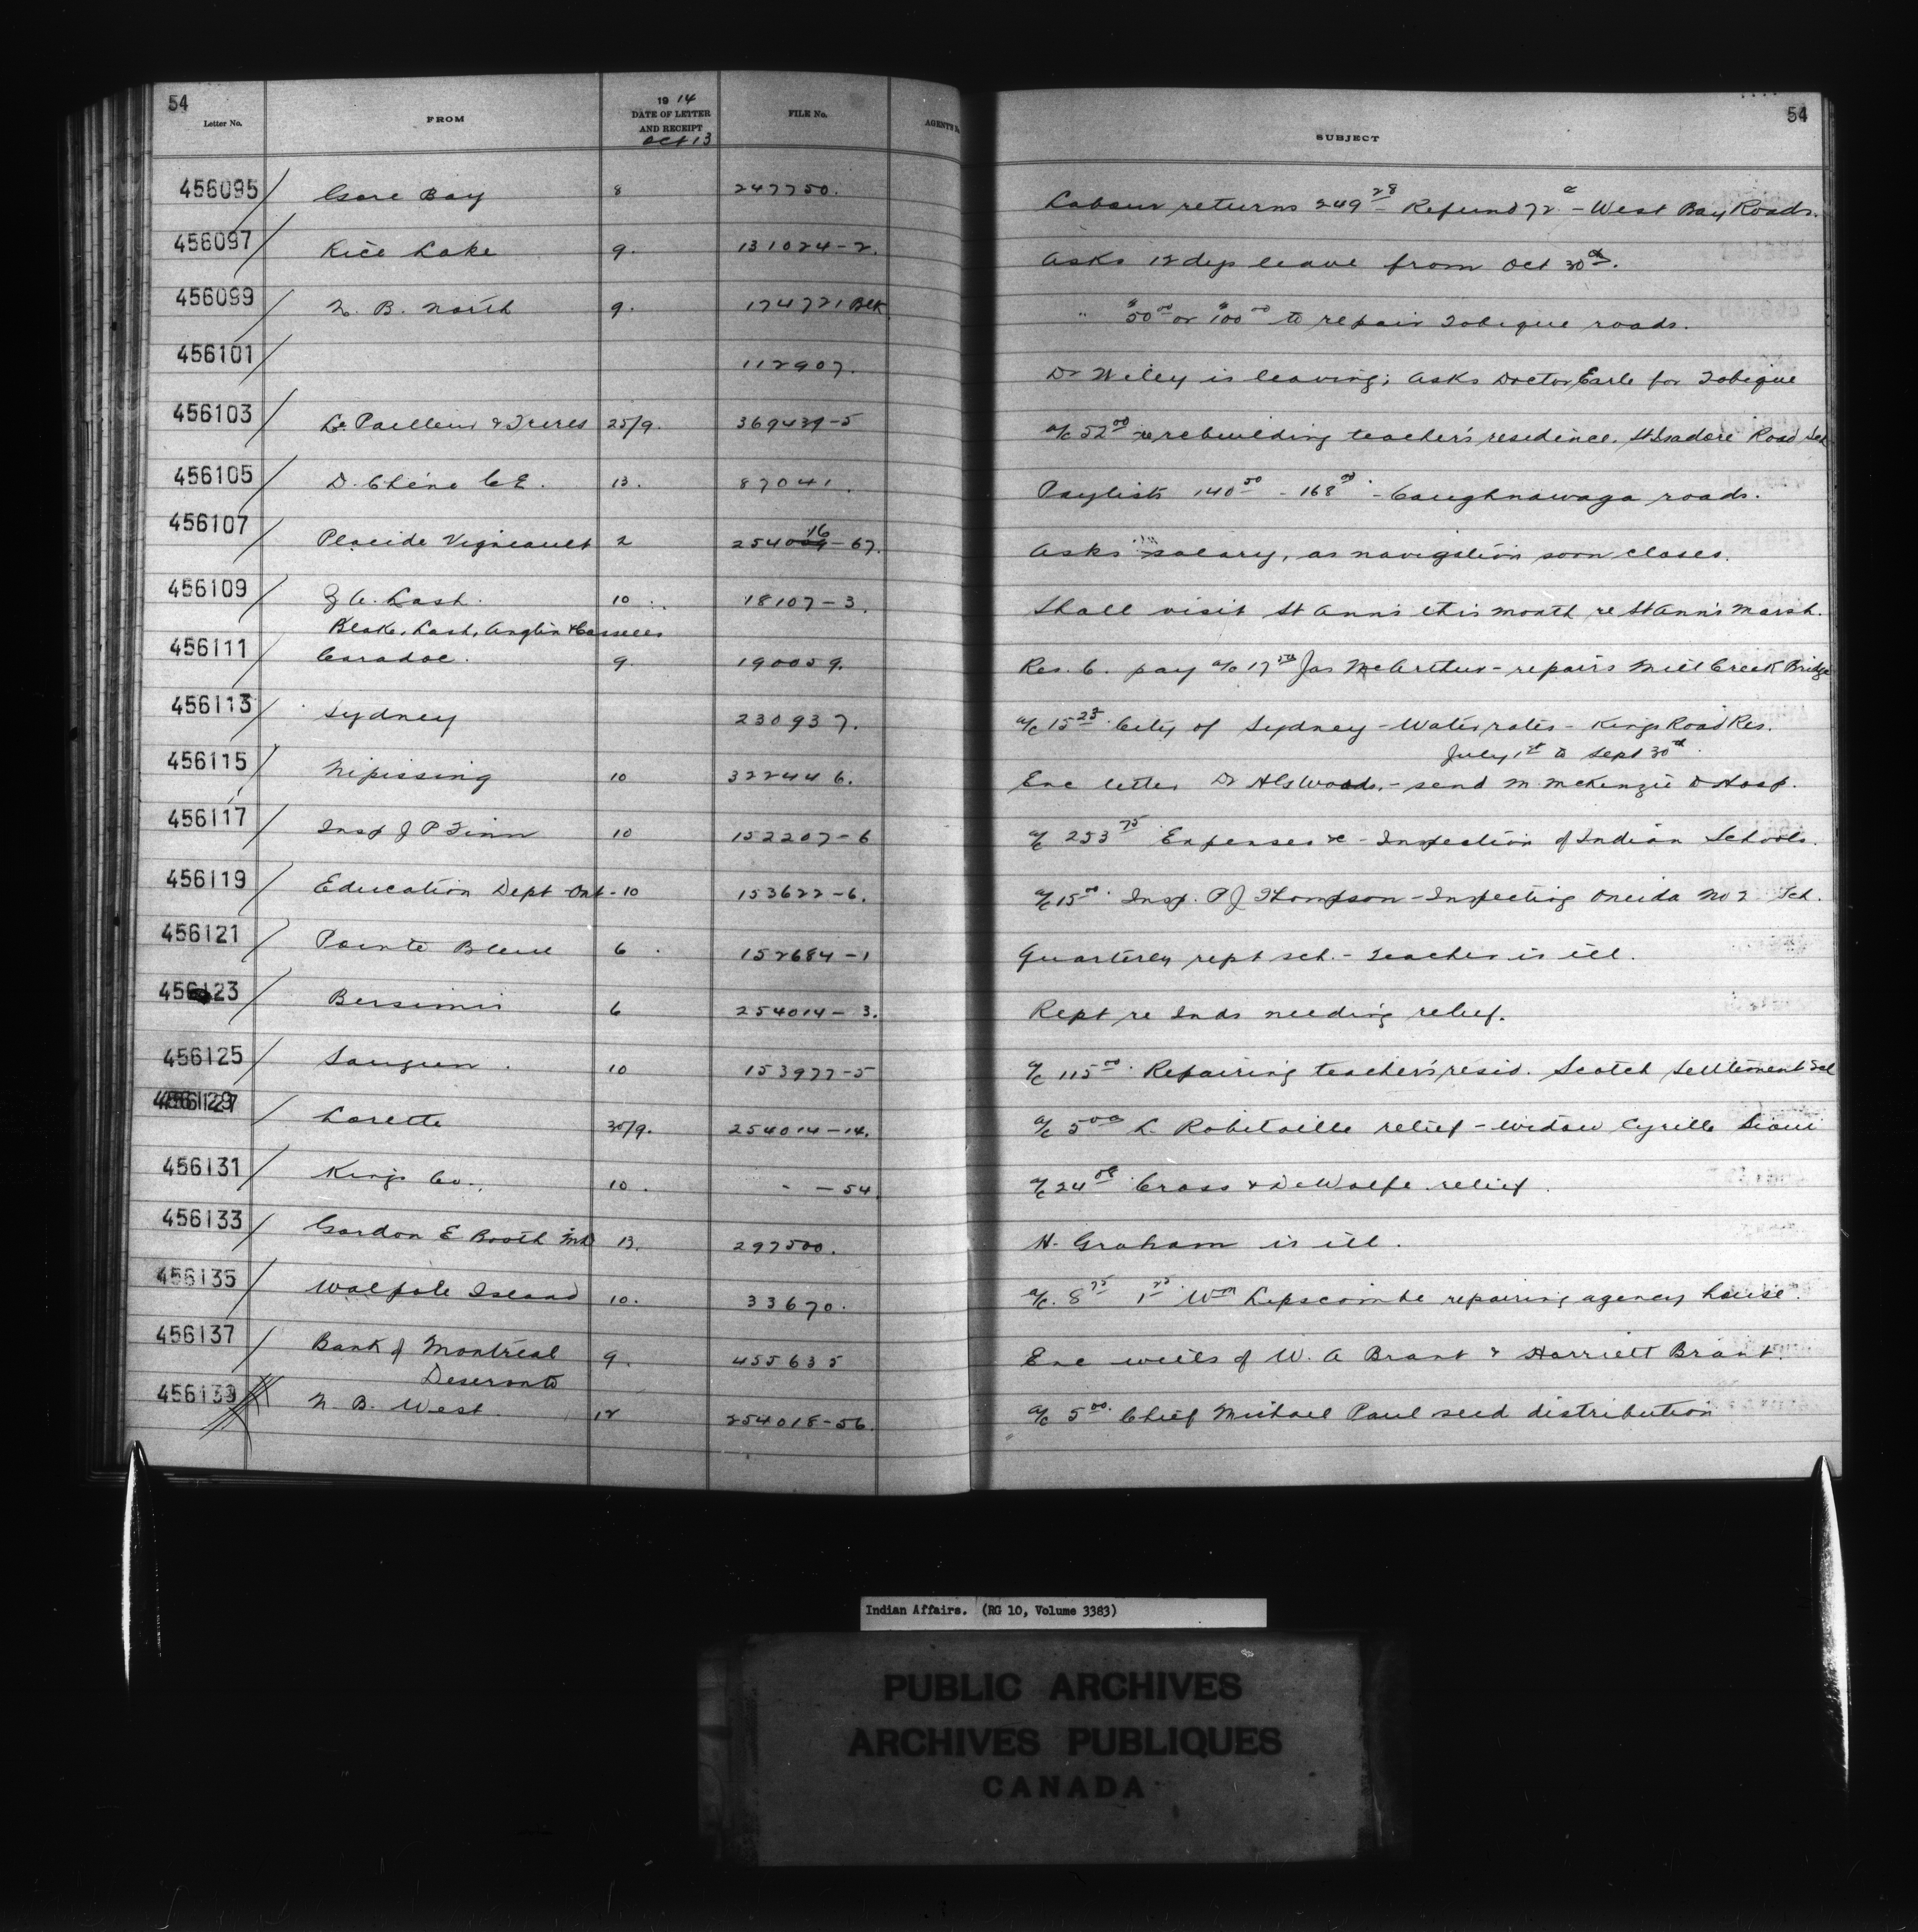 54
Letter No. FROM 1914 DATE OF LETTER AND RECEIPT Oct 13 FILE No. AGENT'S SUBJECT 54
456095 Gore Bay 8 247750. Labour returns 249 28 - Refund 72 c - West Bay Roads.
456097 Rice Lake 9. 131024-2. Asks 12 dys leave from Oct 30th.
456099 N. B. North 9. 174721 Blk " $50 00 or $100 00 to repair Tobique roads.
456101 112907. Dr Wiley is leaving; asks Doctor Earle for Tobique
456103 Le Pailleur & Freres 25/9. 369439-5 a/c 52 00 re rebuilding teacher's residence, St Isadore Road Sch
456105 D. Chène C.E. 13. 87041. Paylists 140 50 - 168 00 - Caughnawaga roads.
456107 Placide Vigneault 2 254016-67. Asks salary, as navigation soon closes.
456109 Z A. Lash. 10 18107-3. Shall visit St Ann's this month re St Ann's Marsh.
Blake, Lash, Anglin & Cassells
456111 Caradoc. 9. 190059. Res. C. pay a/c 17 50 Jas McArthur - repairs Mill Creek Bridge
456113 Sydney 230937. a/c 15 23 City of Sydney - Water rates - Kings Road Res.
July 1st to Sept 30th.
456115 Nipissing 10 322446. Enc letter Dr Woods, - send M. McKenzie to Hosp.
456117 Insp J P Finn 10 152207-6 a/c 253 75 Expenses &c - Inspection of Indian Schools.
456119 Education Dept Ont - 10 153622-6. a/c 15 00 Insp. P J Thompson - Inspecting Oneida No 2 Sch.
456121 Pointe Bleue 6 152684-1 Quarterly rept sch. - Teacher is ill.
456123 Bersimis 6 254014-3. Rept re Inds needing relief.
456125 Saugeen. 10 153977-5 a/c 115 00 Repairing teacher's resid. Scotch Settlement Scl
456127 Lorette 30/9. 254014-14. a/c 5 00 L. Robitaille relief - widow Cyrille Sioui
456131 Kings Co. 10. - - 54 a/c 24 Cross & DeWolfe relief.
456133 Gordon E Booth 13. 297500. H. Graham is ill.
456135 Walpole Island 10. 33670. a/c. 8 75 1 25 Wm Lipscombe repairing agency house.
456137 Bank of Montreal 9. 455635 Enc wills of W. A Brant & Harriett Brant.
Deseronto
456139 N. B. West. 12 254018-56. a/c 5 00. Chief Michael Paul seed distribution
Indian Affairs. (RG 10, Volume 3383)
PUBLIC ARCHIVES
ARCHIVES PUBLIQUES
CANADA